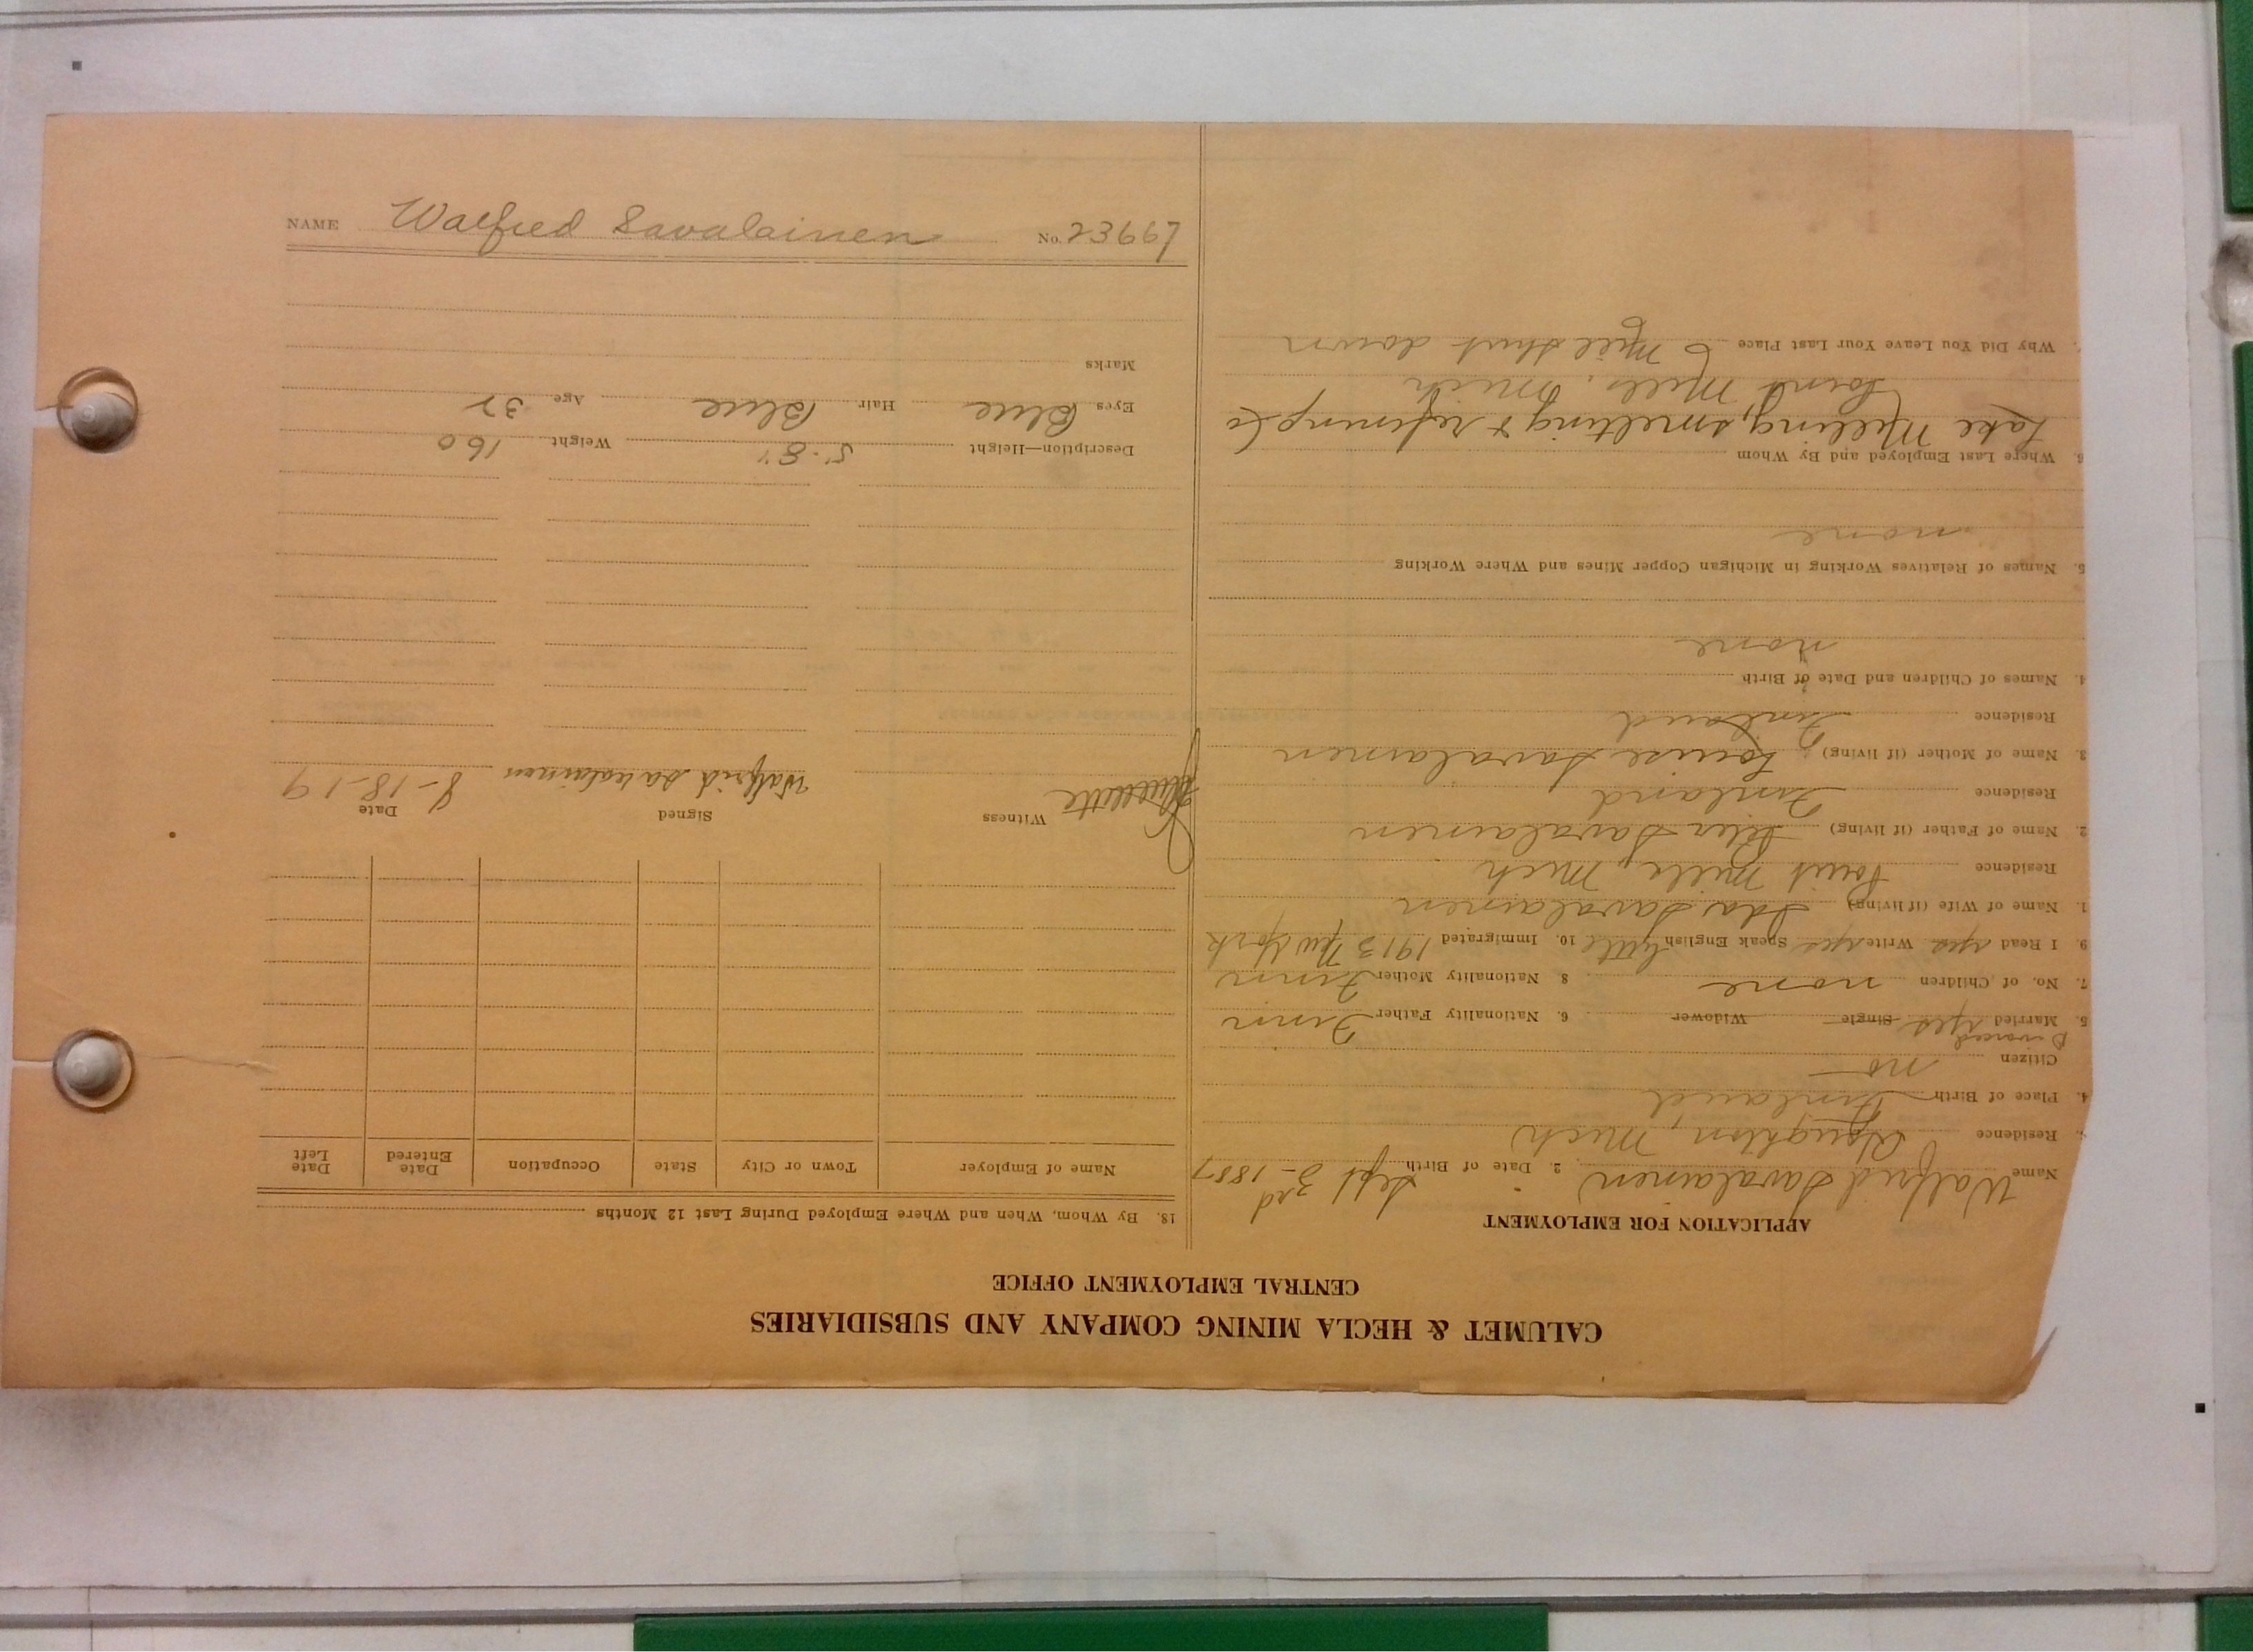 CALUMET & HECLA MINING COMPANY AND SUBSIDIARIES
CENTRAL EMPLOYMENT OFFICE
APPLICATION FOR EMPLOYMENT
Name Walfrid Savalainen 2. Date of Birth Sept 3rd - 1887
Residence Houghton, Mich
4. Place of Birth Finland
Citizen no
Divorced
5. Married yes Single Widower 6. Nationality Father Finn
7. No. of Children none 8 Nationality Mother Finn
9. I Read yes Write yes Speak English little 10. Immigrated 1913 New York
1. Name of Wife (if living) Ida Savalainen
Residence Point Mills, Mich
2. Name of Father (if living) Savalainen
Residence Finland
3. Name of Mother (if living) Louise Savalainen
Residence Finland
4. Names of Children and Date of Birth
none
5. Names of Relatives Working in Michigan Copper Mines and Where Working
none
6. Where Last Employed and By Whom
Lake Milling, smelting & refining Co
Point Mills, Mich
7. Why Did You Leave Your Last Place Mill shut down
18. By Whom, When and Where Employed During Last 12 Months
Name of Employer Town or City State Occupation Date Entered Date Left
Witness Signed Date
Walfrid Savalainen 8-18-19
Description—Height 5-8" Weight 160
Eyes Blue Hair Blue Age 32
Marks
NAME Walfred Savalainen No. 23667